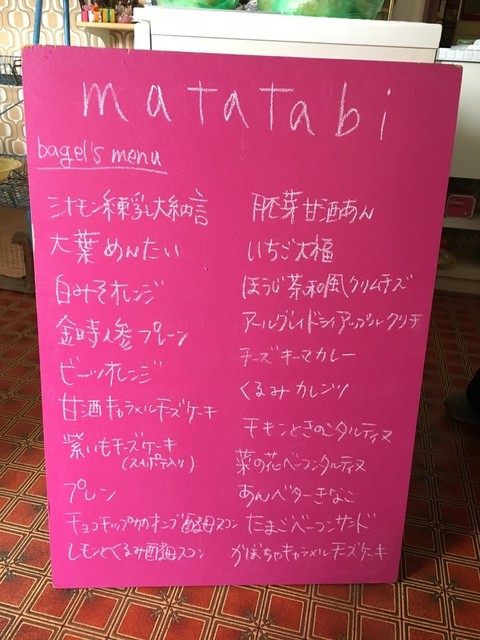 matatabi
bagel's menu
シナモン練乳大納言
大葉めんたい
白みそオレンジ
金時人参プレーン
ビーツオレンジ
甘酒キャラメルチーズケーキ
紫いもチーズケーキ
プレーン
チョコチップカカオニブ酵母スコーン
レモンとくるみ酵母スコーン
胚芽甘酒あん
いちご大福
ほうじ茶和風クリームチーズ
アールグレイドライアップルクリチ
チーズキーマカレー
くるみカレンツ
チキンときのこタルティーヌ
菜の花ベーコンタルティーヌ
あんバターきなこ
たまごベーコンサンド
かぼちゃキャラメルチーズケーキ